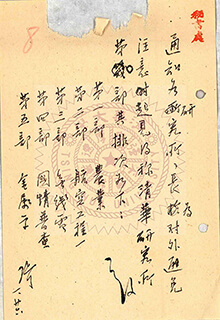 秘書處
通知各研究所所長為對外避免
注意時起見改称清華研究所
第 部其排次如下：
第一部 農業
第二部 航空工程
第三部 無綫電
第四部 國情普查
第五部 金屬學
一、廿六
8